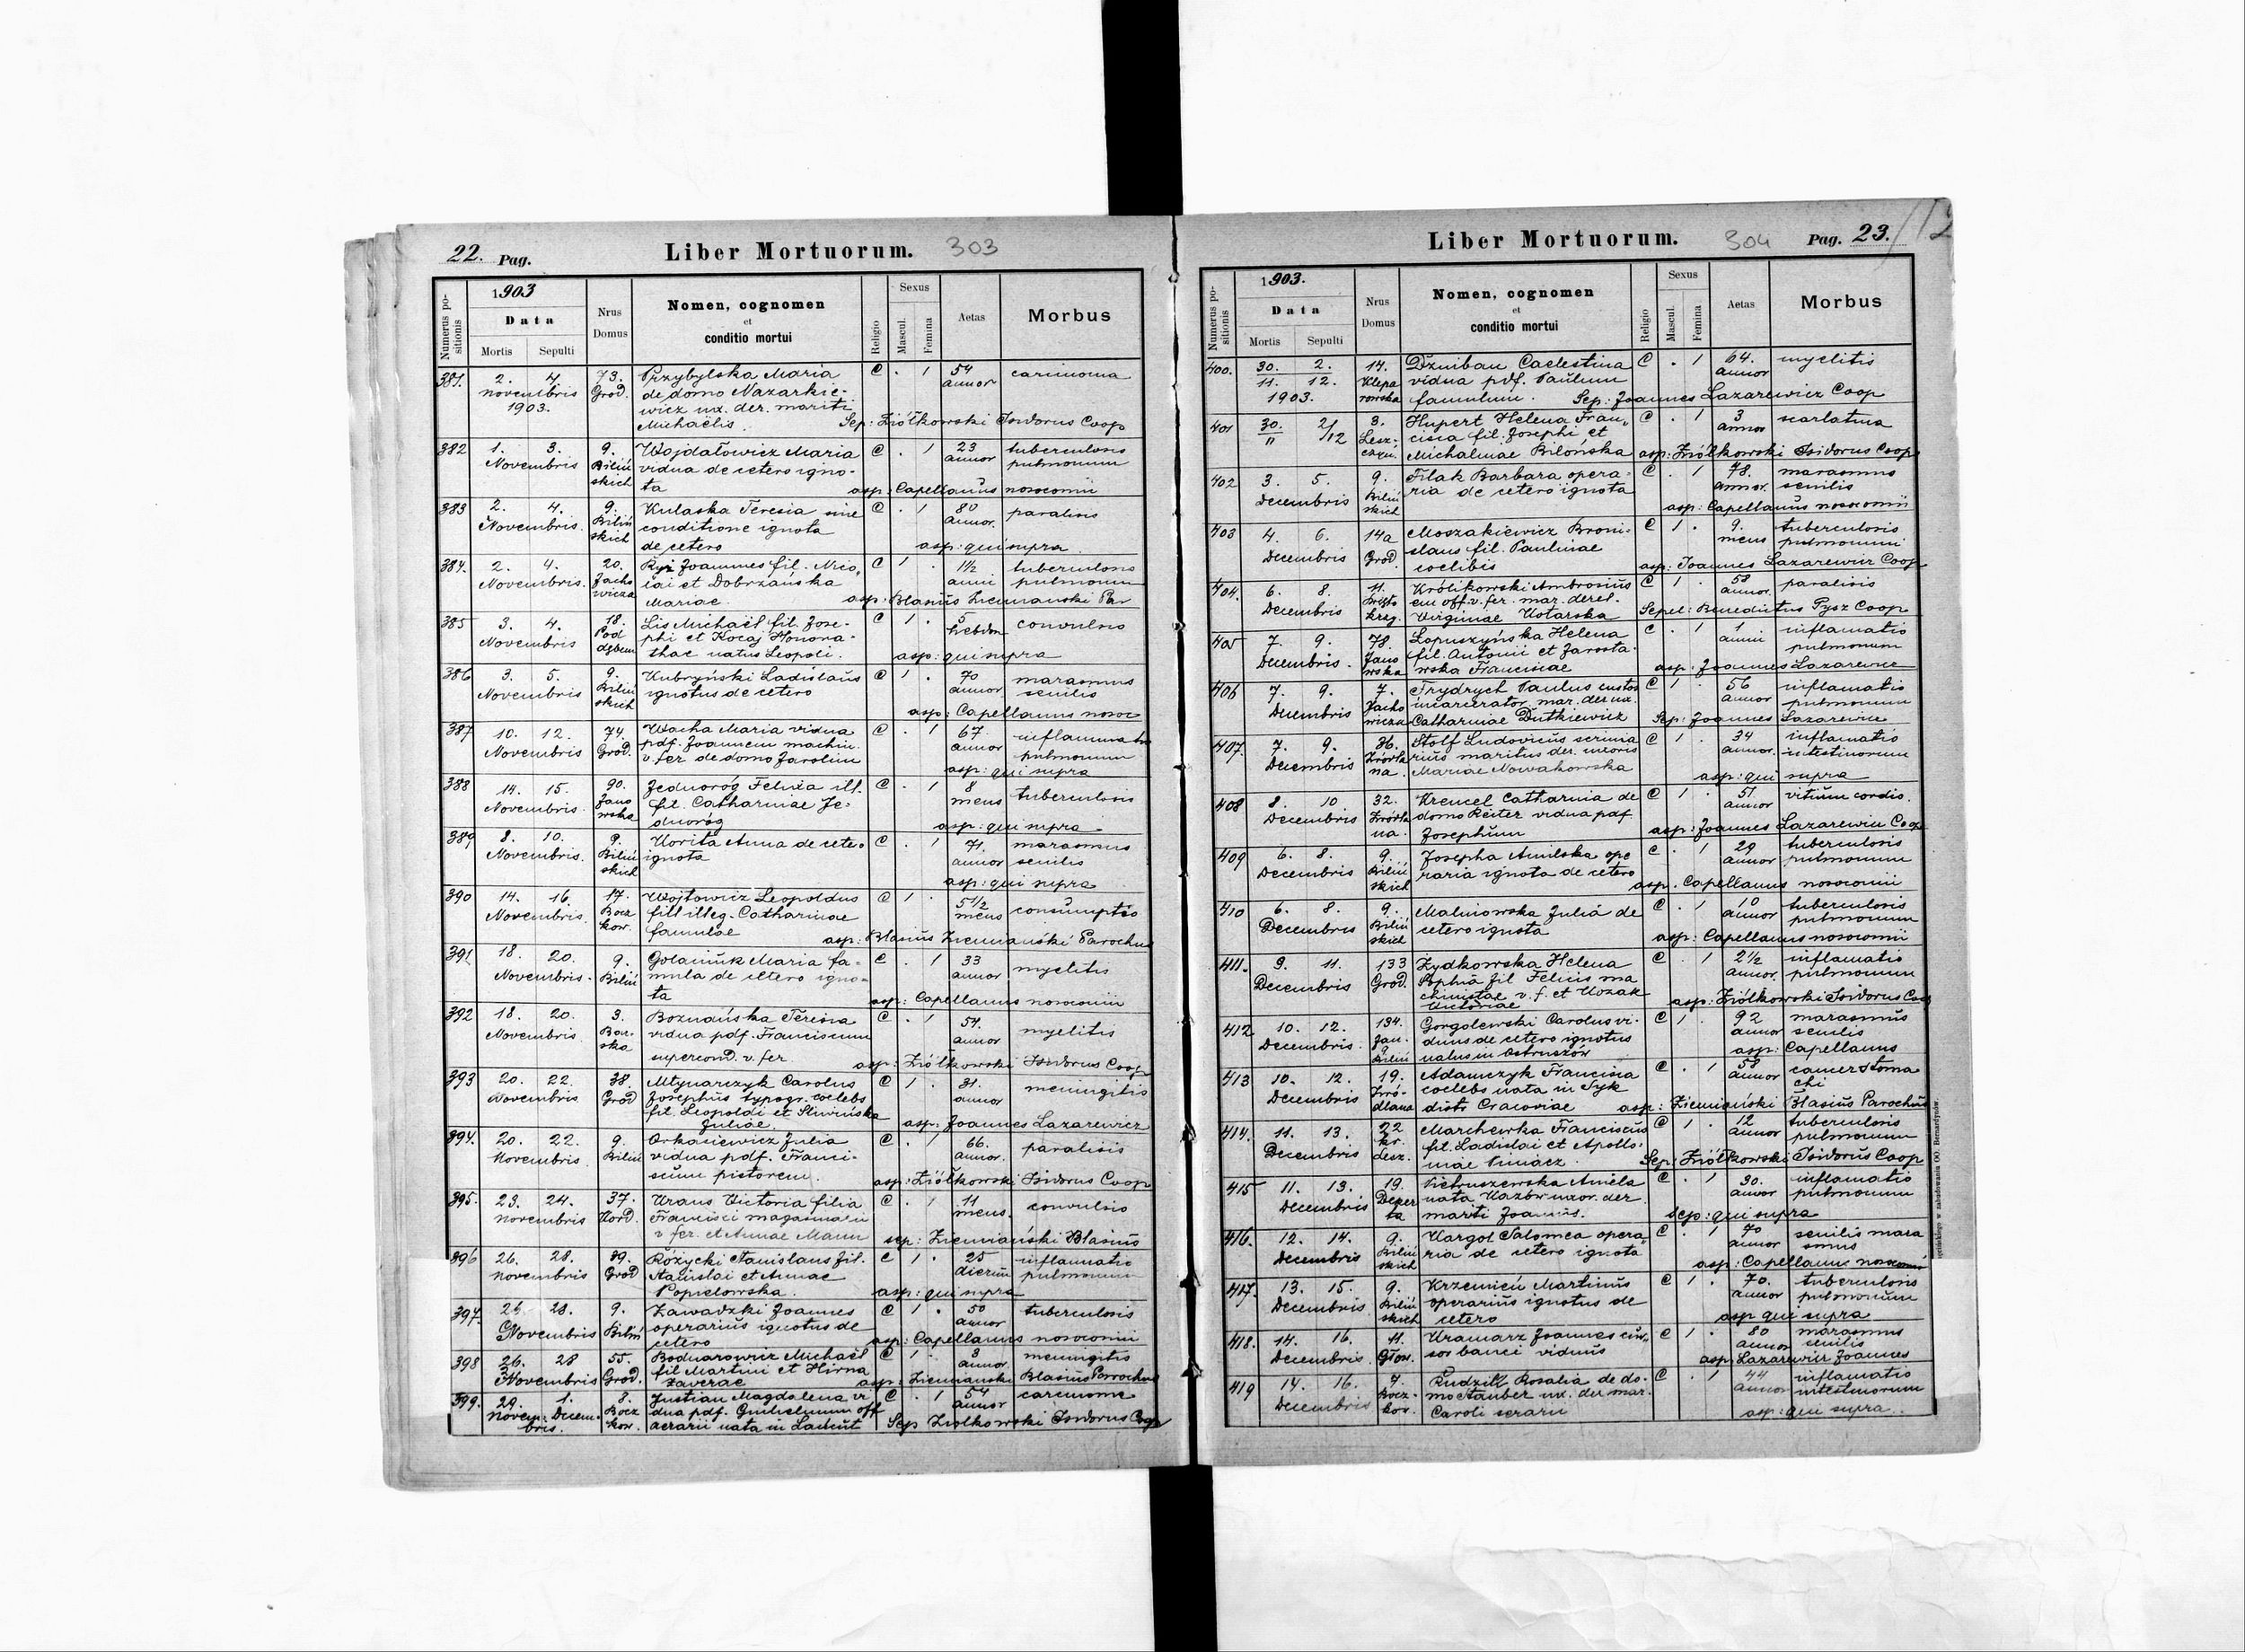 22. Pag. Liber Mortuorum. 303
Numerus positionis
1903
Data
Mortis Sepulti
Nrus Domus
Nomen, cognomen
et
conditio mortui
Religio
Sexus
Mascul. Femina
Aetas
Morbus
381. 2. 4. 73. Przybylska Maria C . 1 54 carcinoma
novembris Grod. de domo Nazarkie- annor
1903. wicz ux. der. mariti
Michaëlis. Sep: Ziółkowski Isidorus Coop
382 1. 3. 9. Wojdałowicz Maria C . 1 23 tuberculosis
Novembris Biliń vidua de cetero igno- annor pulmonum
skich ta asp: Capellanus nosocomii
383 2. 4. 9. Kulaska Teresia sine C . 1 80 paralisis
Novembris. Biliń conditione ignota annor.
skich de cetero asp: qui supra
384. 2. 4. 20. Joannes fil. Nico- C 1 . 1½ tuberculosis
Novembris. Zacho lai et Dobrzańska anni pulmonum
wicza Mariae asp: Blasius Ziemiański Par
385 3. 4. 18. Lis Michaël fil. Jose- C 1 . 5 convulsio
Novembris Pod phi et Kocaj Honora- hebdom
dębem thae natus Leopoli. asp: qui supra
386 3. 5. 9. Kubryński Ladislaus C 1 . 70 marasmus
Novembris Biliń ignotus de cetero annor senilis
skich asp: Capellanus nosoc
387 10. 12. 74. Wacha Maria vidua C . 1 67 inflammatio
Novembris Grod. pdf. Joannem machin. annor pulmonum
v. fer de domo Jarolim asp: qui supra
388 14. 15. 90. Jednoróg Felixa ill. C . 1 8 tuberculosis
Novembris. Jano fil. Catharinae Je- mens
wska dnoróg asp: qui supra
389 8. 10. 9. Korita Anna de cetero C . 1 71. marasmus
Novembris. Biliń ignota annor senilis
skich asp: qui supra
390 14. 16. 17. Wojtowicz Leopoldus C 1 . 5½ consumptio
Novembris. Bocz fill illeg. Catharinae mens
kow. famulae asp: Blasius Ziemiański Parochus
391 18. 20. 9. Golaniuk Maria fa- C . 1 33 myelitis
Novembris. Biliń mula de cetero igno- annor
ta asp: Capellanus nosocomii
392 18. 20. 3. Boznańska Teresia C . 1 54. myelitis
Novembris Bar- vidua pdf. Franciscum annor
ska supercond. v. fer. asp: Ziółkowski Isidorus Coop
393 20. 22. 38. Młynarczyk Carolus C 1 . 31. meningitis
Novembris Grod Josephus typogr. coelebs annor
fil. Leopoldi et Śliwińska
Juliae. asp: Joannes Lazarewicz
394. 20. 22. 9. Orkasiewicz Julia C . 1 66. paralisis
Novembris Biliń vidua pdf. Franci- annor.
scum pistorem. asp: Ziółkowski Isidorus Coop
395. 23. 24. 37. Kraus Victoria filia C . 1 11 convulsio
novembris Kord. Francisci magasinarii mens.
v fer. et Annae Mann sep: Ziemiański Blasius
396 26. 28. 39. Różycki Stanislaus fil. C 1 . 25 inflamatio
novembris Grod Stanislai et Annae dierum pulmonum
Popielowska. asp: qui supra
397. 26. 28. 9. Zawadzki Joannes C 1 . 50 tuberculosis
Novembris Biliń operarius ignotus de annor
cetero asp: Capellanus nosocomii
398 26. 28 55. Bodnarowicz Michaël C 1 . 3 meningitis
Novembris Grod. fil Martini et Hirna annor.
Xaverae asp: Ziemianski Blasius Parochus
399. 29. 1. 8. Justian Magdalena vi C . 1 54 carcinoma
Novem: Decem- Bocz dua pdf. Guilielmum off annor
bris. kow. aerarii nata in Lańcut Sep Ziolkowski Isidorus Coop
Liber Mortuorum. 304 Pag. 23.
Numerus positionis
1903.
Data
Mortis Sepulti
Nrus Domus
Nomen, cognomen
et
conditio mortui
Religio
Sexus
Mascul. Femina
Aetas
Morbus
400. 30. 2. 14. Dzniban Caelestina C . 1 64. myelitis
11. 12. Klepa vidua pdf. Paulum annor
1903. rowska famulum. Sep: Joannes Lazarewicz Coop
401 30. 2/12 3. Hupert Helena Fran- C . 1 3 scarlatina
11 Lesz- cisca fil. Josephi et annor
Michalinae Bilońska asp: Ziółkowski Isidorus Coop
402 3. 5. 9. Filak Barbara opera- C . 1 78. marasmus
Decembris Biliń ria de cetero ignota annor. senilis
skich asp: Capellanus nosocomii
403 4. 6. 14a Moszakiewicz Broni- C 1 . 9. tuberculosis
Decembris Grod. slaus fil. Paulinae mens pulmonum
coelibis asp: Joannes Lazarewicz Coop
404. 6. 8. 11. Królikowski Ambrosius C 1 . 58 paralisis
Decembris Święto em off. v. fer. mar. derel. annor.
krzy. Virginiae Kotarska Sepel: Benedictus Pysz Coop
405 7. 9. 78. Łopuszyńska Helena C . 1 1 inflamatio
Decembris. Jano fil. Antonii et Zarosta- anni pulmonum
wska wska Franciscae asp: Joannes Lazarewicz
406 7. 9. 7. Frydrych Paulus custos C 1 . 56 inflamatio
Decembris Zacho incarcerator. mar. der ux. annor pulmonum
wicza Catharinae Dutkiewicz Sep: Joannes Lazarewicz
407. 7. 9. 36. Stolf Ludovicus scrinia C 1 . 34 inflamatio
Decembris Źródla rius maritus der. uxoris annor. intestinorum
na. Mariae Nowakowska asp: qui supra
408 8. 10. 32. Krencel Catharina de C . 1 51. vitium cordis.
Decembris Źródla domo Reiter vidua pdf annor
na. Josephum asp: Joannes Lazarewicz Coop
409 6. 8. 9. Josepha Amilska ope C . 1 29 tuberculosis
Decembris Biliń raria ignota de cetero annor pulmonum
skich asp. Capellanus nosocomii
410 6. 8. 9. Malinowska Julia de C . 1 10 tuberculosis
Decembris Biliń cetero ignota annor pulmonum
skich asp: Capellanus nosocomii
411. 9. 11. 133 Zydkowska Helena C . 1 2½ inflamatio
Decembris Grod. Sophia fil Felicis ma annor. pulmonum
chinistae v. f. et Kozak
Victoriae asp: Ziółkowski Isidorus Coop
412 10. 12. 134. Gorgolewski Carolus vi- C 1 . 92 marasmus
Decembris. Jan. duus de cetero ignotus annor senilis
Biliń natus in Ostruszów asp: Capellanus
413 10. 12. 19. Adamczyk Francisca C . 1 58 cancer stoma
Decembris Źró- coelebs nata in Syk annor chi
dlana distr Cracoviae asp: Ziemiański Blasius Parochus
414. 11. 13. 22 Marchewka Franciscus C 1 . 12 tuberculosis
Decembris kr. fil. Ladislai et Apollo- annor pulmonum
Lesz. niae Piniacz. Sep: Ziółkowski Isidorus Coop
415 11. 13. 19. Pietruszewska Aniela C . 1 30. inflamatio
Decembris nata Kazbw uxor. der annor pulmonum
ta mariti Joannis. sep: qui supra
416. 12. 14. 9. Kargol Salomea opera- C . 1 70 senilis mara
Decembris Biliń ria de cetero ignota annor smus
skich asp: Capellanus nosocomii
417. 13. 15. 9. Krzemień Martinus C 1 . 70. tuberculosis
Decembris Biliń operarius ignotus de annor pulmonum
skich cetero asp qui supra
418. 14. 16. 11. Kramarz Joannes cur- C 1 . 80 marasmus
Decembris. Głow. sor banci viduus annor senilis
asp: Lazarewicz Joannes
419 14. 16. 7. Rudzill Rosalia de do- C . 1 44 inflamatio
Decembris Bocz- mo Stauber ux. der mar. annor intestinorum
kow. Caroli serarii asp: qui supra.